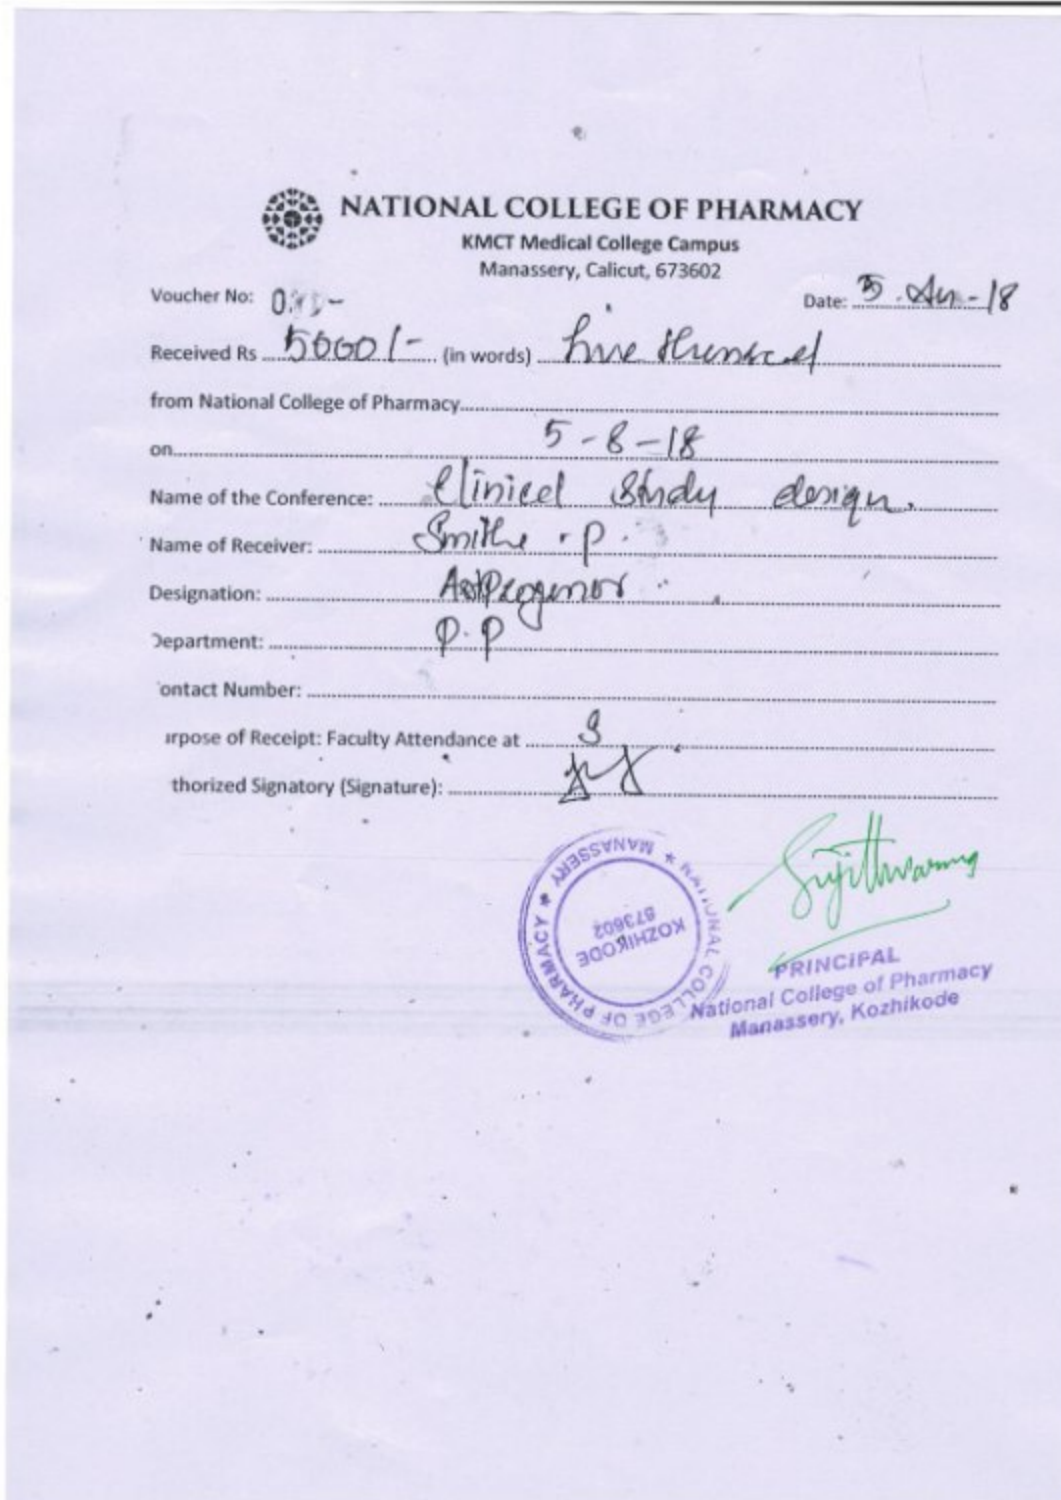 NATIONAL COLLEGE OF PHARMACY
KMCT Medical College Campus
Manassery, Calicut, 673602
Voucher No:
Date: 5 - 18
Received Rs 5000/- (in words) five
from National College of Pharmacy
on 5-8-18
Name of the Conference: Clinicel Study design.
Name of Receiver: Smithe . P.
Designation:
Department: P.P
ontact Number:
urpose of Receipt: Faculty Attendance at
thorized Signatory (Signature):
NATIONAL COLLEGE OF PHARMACY ★ MANASSERY ★
KOZHIKODE
673602
PRINCIPAL
National College of Pharmacy
Manassery, Kozhikode